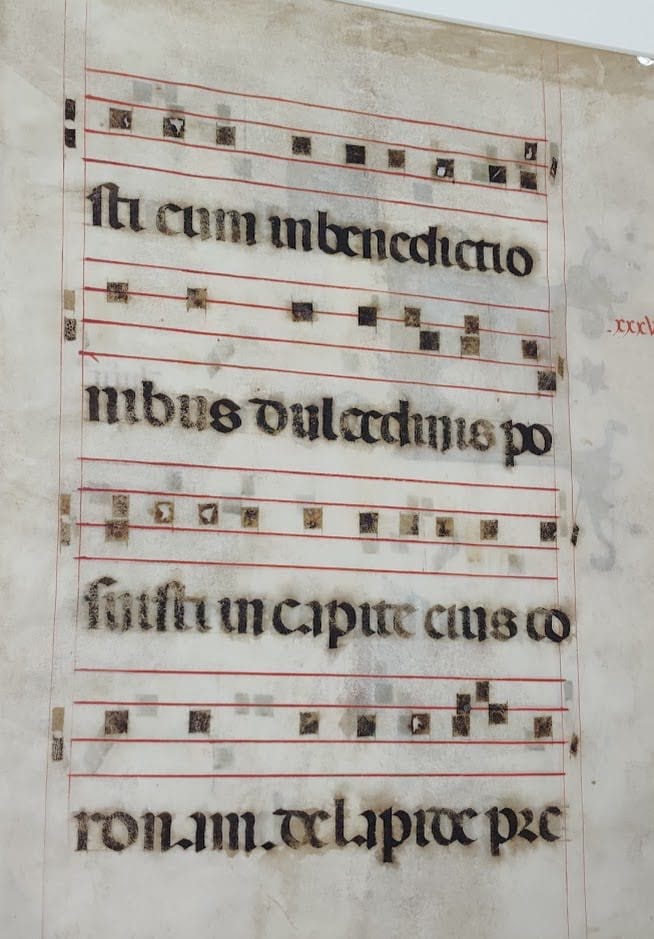 sti cum in benedictio
nibus dulcedinis po
.xxxv
suisti in capite eius co
ronam. de lapide pre